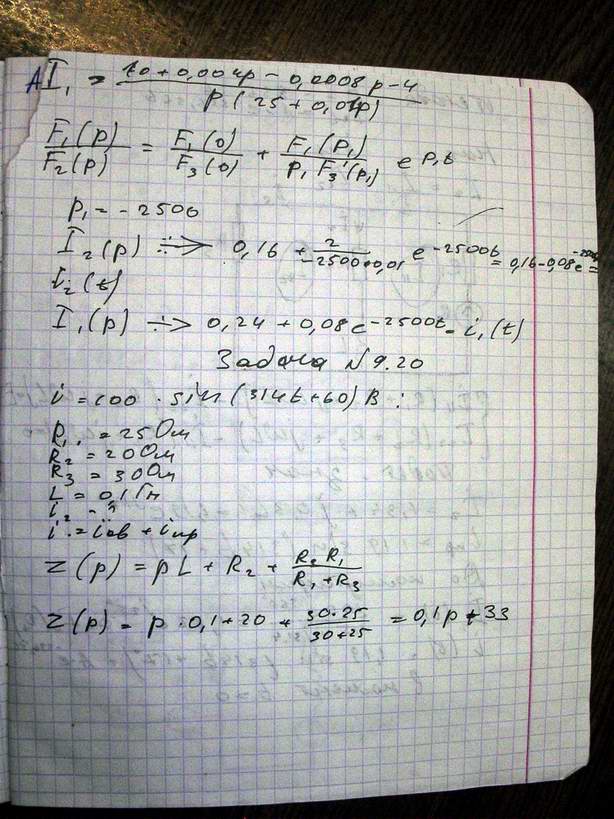 I₁ = (10+0,004p − 0,0008p−4) / (p(25+0,01p))
F₁(p)/F₂(p) = F₁(0)/F₃(0) + F₁(p₁)/(p₁F₃'(p₁)) e^p₁t
p₁ = −2500
I₂(p) ÷> 0,16 + 2/(−2500·0,01) e^−2500t = 0,16−0,08e^−2500t =
i₂(t)
I₁(p) ÷> 0,24 + 0,08e^−2500t = i₁(t)
Задача №9.20
i = 100 · sin(314t+60) В :
R₁ = 25 Ом
R₂ = 20 Ом
R₃ = 30 Ом
L = 0,1 Гн
i₂ - ?
i = iсв + iпр
Z(p) = pL + R₂ + R₃R₁/(R₁+R₃)
Z(p) = p · 0,1+20 + 30·25/(30+25) = 0,1p+33